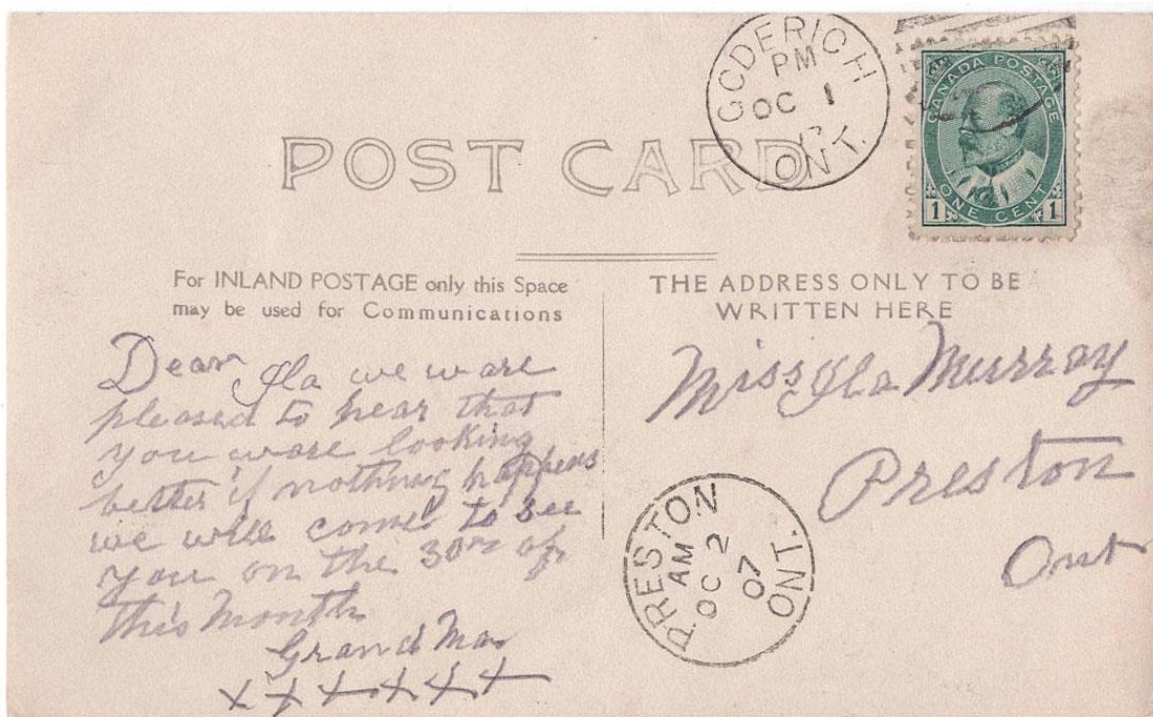 GODERICH
PM
OC 1
07
ONT.
CANADA POSTAGE
1 ONE CENT 1
POST CARD
For INLAND POSTAGE only this Space
may be used for Communications
THE ADDRESS ONLY TO BE
WRITTEN HERE
Dear Ila we ware
pleased to hear that
you ware looking
better if nothing happens
we will come to see
you on the 30th of
this Month
Grand Ma
xxxxxxx
Miss Ila Murray
Preston
Ont
PRESTON
AM
OC 2
07
ONT.